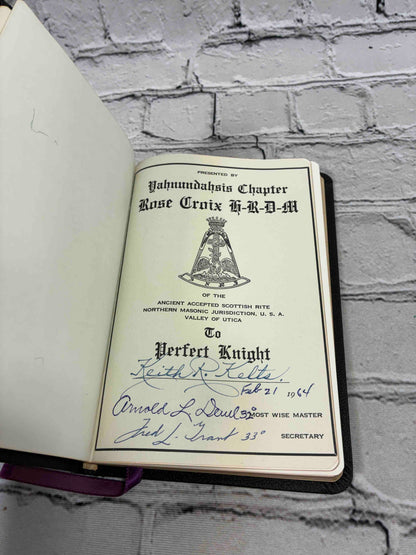 PRESENTED BY
Yahnundahsis Chapter
Rose Croix H-R-D-M
OF THE
ANCIENT ACCEPTED SCOTTISH RITE
NORTHERN MASONIC JURISDICTION, U. S. A.
VALLEY OF UTICA
To
Perfect Knight
Keith R. Kelts.
Feb 21 1964
Arnold L 32° MOST WISE MASTER
Fred L. Grant 33° SECRETARY